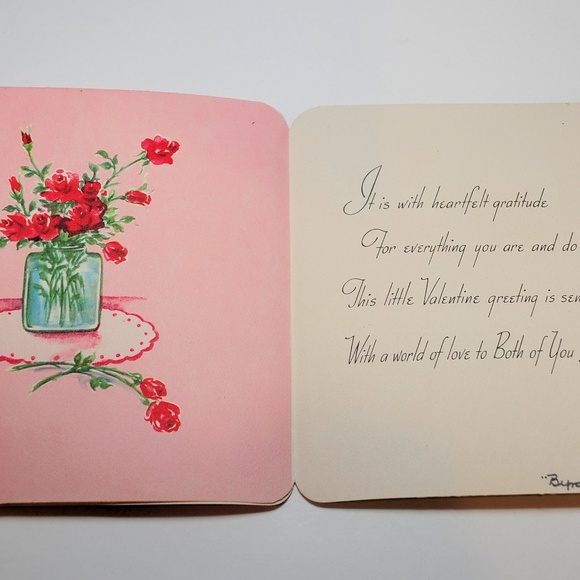 It is with heartfelt gratitude
For everything you are and do
This little Valentine greeting is sen
With a world of love to Both of You